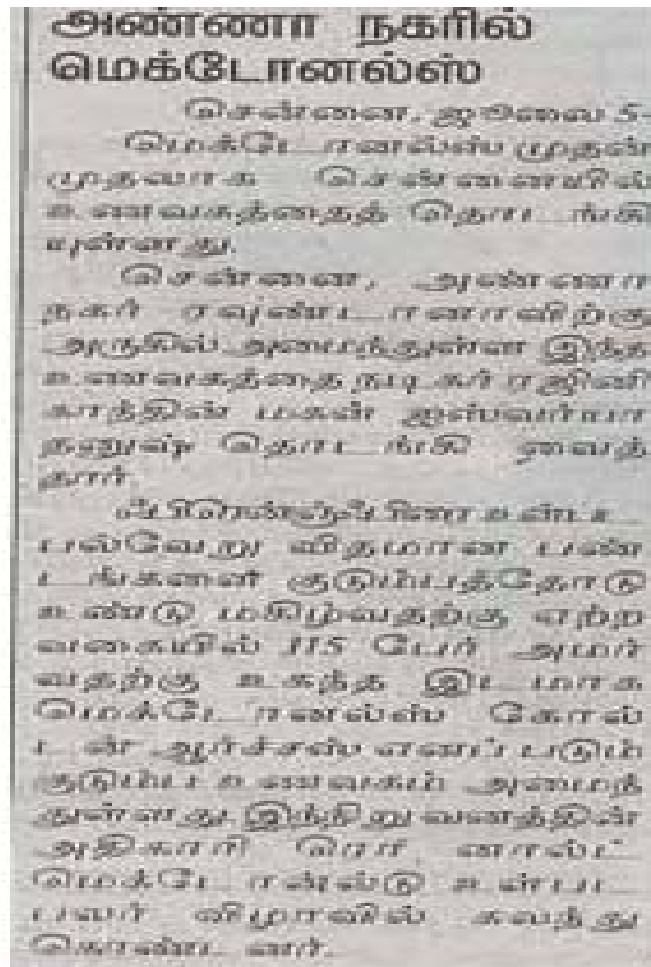 அண்ணா நகரில்
மெக்டோனல்ஸ்
சென்னை, ஜூலை 5-
மெக்டோனல்ஸ் முதன்
முதலாக சென்னையில்
உணவகத்தைத் தொடங்கி
யுள்ளது.
சென்னை, அண்ணா
நகர் ரவுண்டானாவிற்கு
அருகில் அமைந்துள்ள இந்த
உணவகத்தை நடிகர் ரஜினி
காந்தின் மகள் ஐஸ்வர்யா
தனுஷ் தொடங்கி வைத்
தார்.
உள்பட
பல்வேறு விதமான பண்
டங்களை குடும்பத்தோடு
உண்டு மகிழ்வதற்கு ஏற்ற
வகையில் 115 பேர் அமர்
வதற்கு உகந்த இடமாக
மெக்டோனல்ஸ் கோல்
டன் ஆர்ச்சஸ் எனப் படும்
குடும்ப உணவகம் அமைந்
துள்ளது. இந்நிறுவனத்தின்
அதிகாரி ரொனால்ட்
மெக்டோனல்டு உள்பட
பலர் விழாவில் கலந்து
கொண்டனர்.